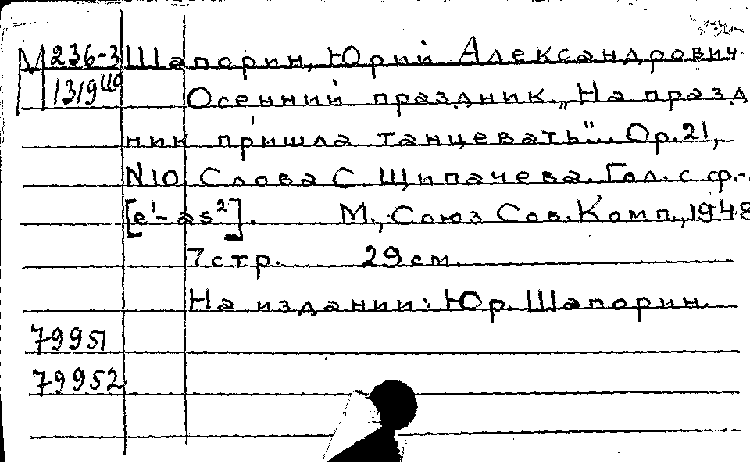 М 236-3 Шапорин, Юрий Александрович
1319 Осенний праздник. „На празд
ник пришла танцевать". Ор.21,
N10 Слова С. Щипачева. Гол. с ф.-
[e¹-as²]. М., Союз Сов. Комп., 1948
7 стр. 29 см.
На издании: Юр. Шапорин.
79951
79952